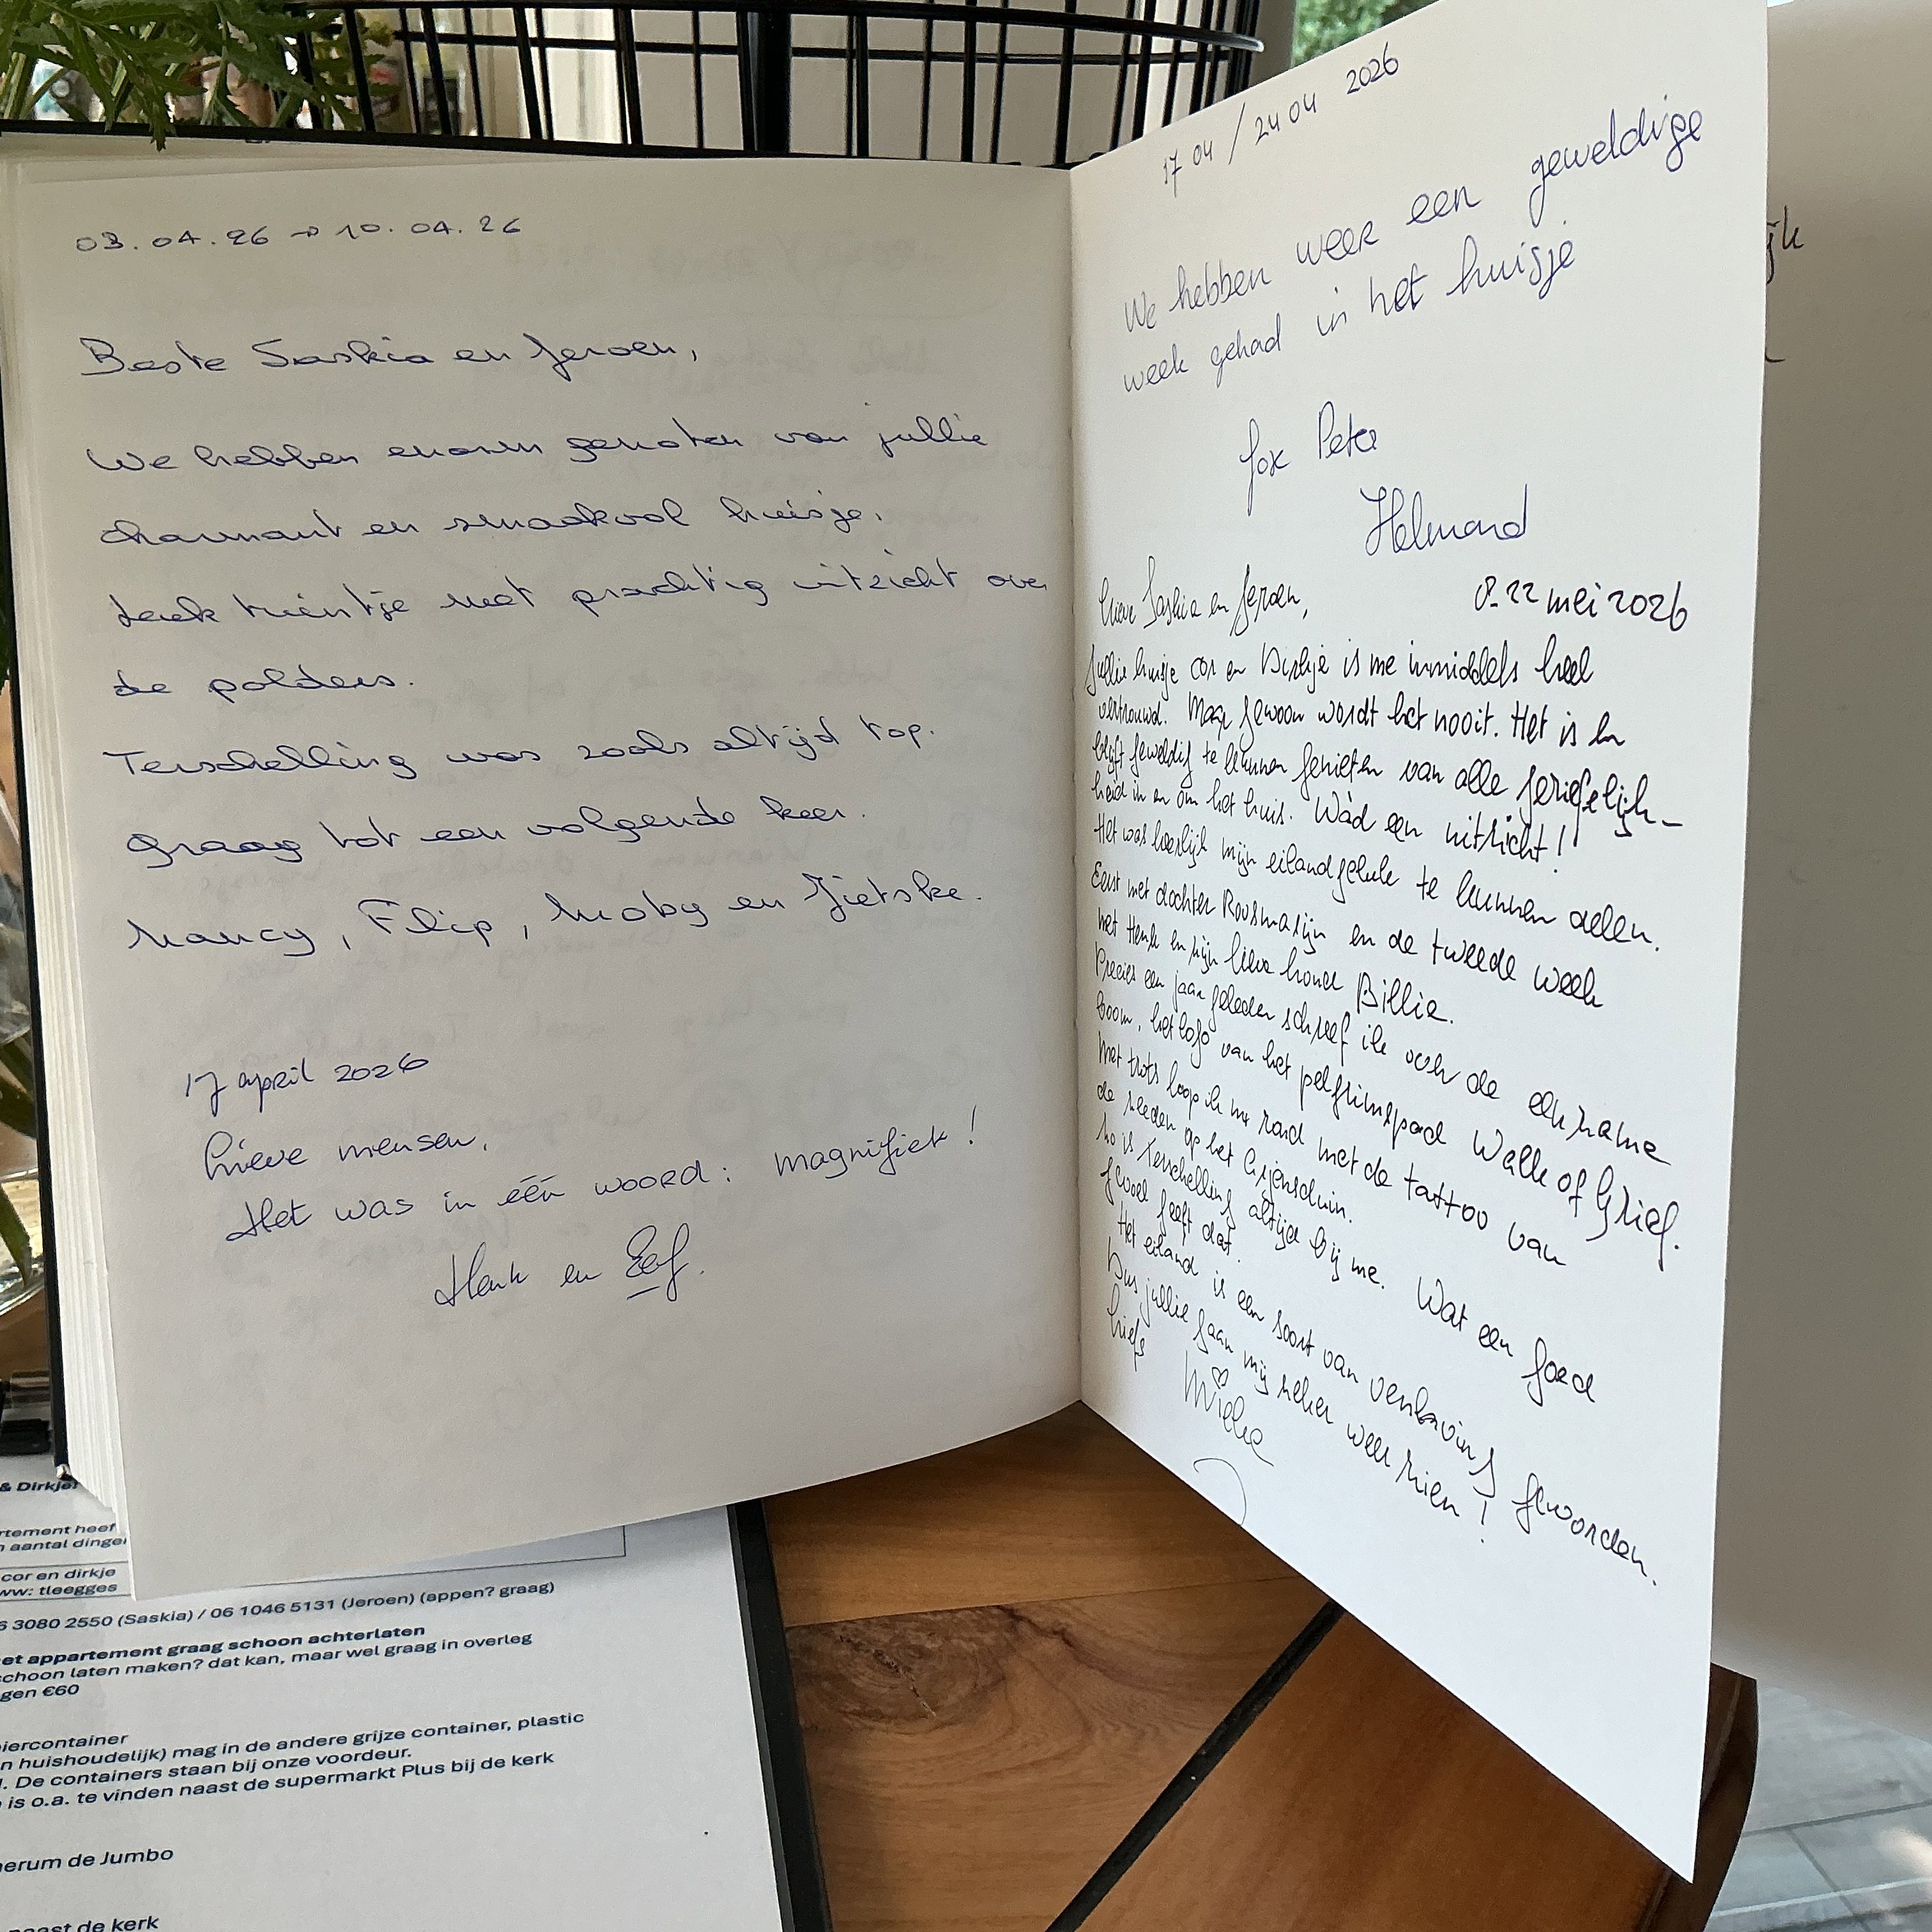 03.04.26 → 10.04.26
Beste Saskia en Jeroen,
We hebben enorm genoten van jullie
charmant en smaakvol huisje.
Leuk tuintje met prachtig uitzicht over
de polders.
Terschelling was zoals altijd top.
Graag tot een volgende keer.
Nancy, Filip, Moby en Jietske.
17 april 2026
Lieve mensen,
Het was in één woord: magnifiek!
Henk en Eef.
17 04 / 24 04 2026
We hebben weer een geweldige
week gehad in het huisje
Peter
Helmond
8-22 mei 2026
Lieve Saskia en Jeroen,
Jullie huisje Cor en Dirkje is me inmiddels heel
vertrouwd. Maar gewoon wordt het nooit. Het is en
blijft geweldig te kunnen genieten van alle geriefelijk-
heid in en om het huis. Wàd een uitzicht!
Het was heerlijk mijn eilandgeluk te kunnen delen.
Eerst met dochter Roosmarijn en de tweede week
met Henk en zijn lieve hond Billie.
Precies een jaar geleden schreef ik over de eenzame
boom, het logo van het pelgrimspad Walk of Grief.
Met trots loop ik nu rond met de tattoo van
de op het
Zo is Terschelling altijd bij me. Wat een goed
gevoel geeft dat.
Het eiland is een soort van geworden.
Dus jullie gaan mij zeker weer zien!
Liefs
Mieke
jk
& Dirkje
rtement heef
n aantal dinge
cor en dirkje
ww: tleegges
6 3080 2550 (Saskia) / 06 1046 5131 (Jeroen) (appen? graag)
et appartement graag schoon achterlaten
schoon laten maken? dat kan, maar wel graag in overleg
gen €60
iercontainer
n huishoudelijk) mag in de andere grijze container, plastic
l. De containers staan bij onze voordeur.
is o.a. te vinden naast de supermarkt Plus bij de kerk
erum de Jumbo
naast de kerk